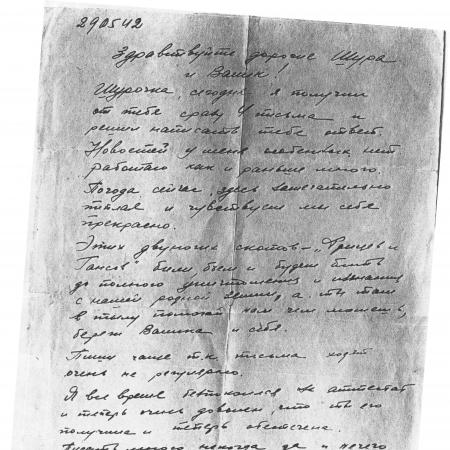 290542
Здравствуйте дорогие Шура
и Валик!
Шурочка, сегодня я получил
от тебя сразу 4 письма и
решил написать тебе ответ.
Новостей у меня особенных нет
работаю как и раньше много.
Погода сейчас здесь замечательно
тёплая и чувствуем мы себя
прекрасно.
Этих двуногих скотов – „Фрицев и
Гансов" били, бьем и будем бить
до полного уничтожения и изгнания
с нашей родной земли, а ты там
в тылу помогай нам чем можешь,
береги Валика и себя.
Пиши чаще т.к. письма ходят
очень не регулярно.
Я всё время беспокоился за аттестат
и теперь очень доволен, что ты его
получила и теперь обеспечена.
Писать много некогда да и нечего